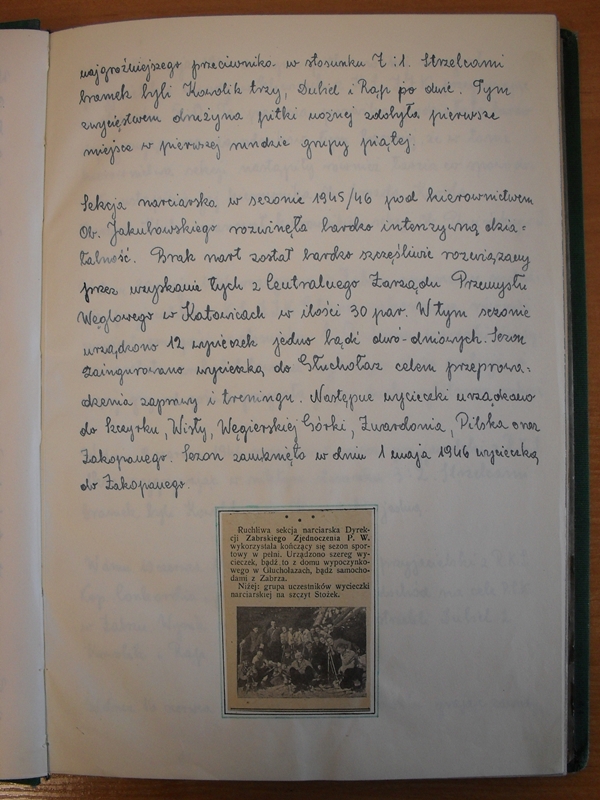 najgroźniejszego przeciwnika w stosunku 7:1. Strzelcami
bramek byli Kowolik trzy, Dubiel i Rąp po dwie. Tym
zwycięstwem drużyna piłki nożnej zdobyła pierwsze
miejsce w pierwszej rundzie grupy piątej.
Sekcja narciarska w sezonie 1945/46 pod kierownictwem
Ob. Jakubowskiego rozwinęła bardzo intenzywną dzia-
łalność. Brak nart został bardzo szczęśliwie rozwiązany
przez uzyskanie tych z Centralnego Zarządu Przemysłu
Węglowego w Katowicach w ilości 30 par. W tym sezonie
urządzono 12 wycieczek jedno bądź dwó-dniowych. Sezon
zaingurowano wycieczką do Głuchołaz celem przeprowa-
dzenia zaprawy i treningu. Następne wycieczki urządzano
do Szczyrku, Wisły, Węgierskiej Górki, Zwardonia, Pilska oraz
Zakopanego. Sezon zamknięto w dniu 1 maja 1946 wycieczką
do Zakopanego.
Ruchliwa sekcja narciarska Dyrek-
cji Zabrskiego Zjednoczenia P. W.
wykorzystała kończący się sezon spor-
towy w pełni. Urządzono szereg wy-
cieczek, bądź to z domu wypoczynko-
wego w Głuchołazach, bądź samocho-
dami z Zabrza.
Niżej: grupa uczestników wycieczki
narciarskiej na szczyt Stożek.